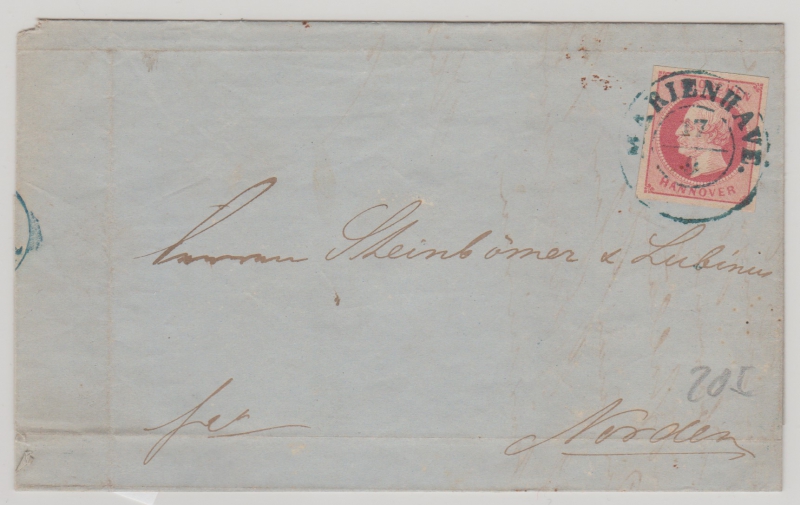 MARIENHAVE.
17
HANNOVER
Herren Steinbömer & Lubinus
fr
Norden